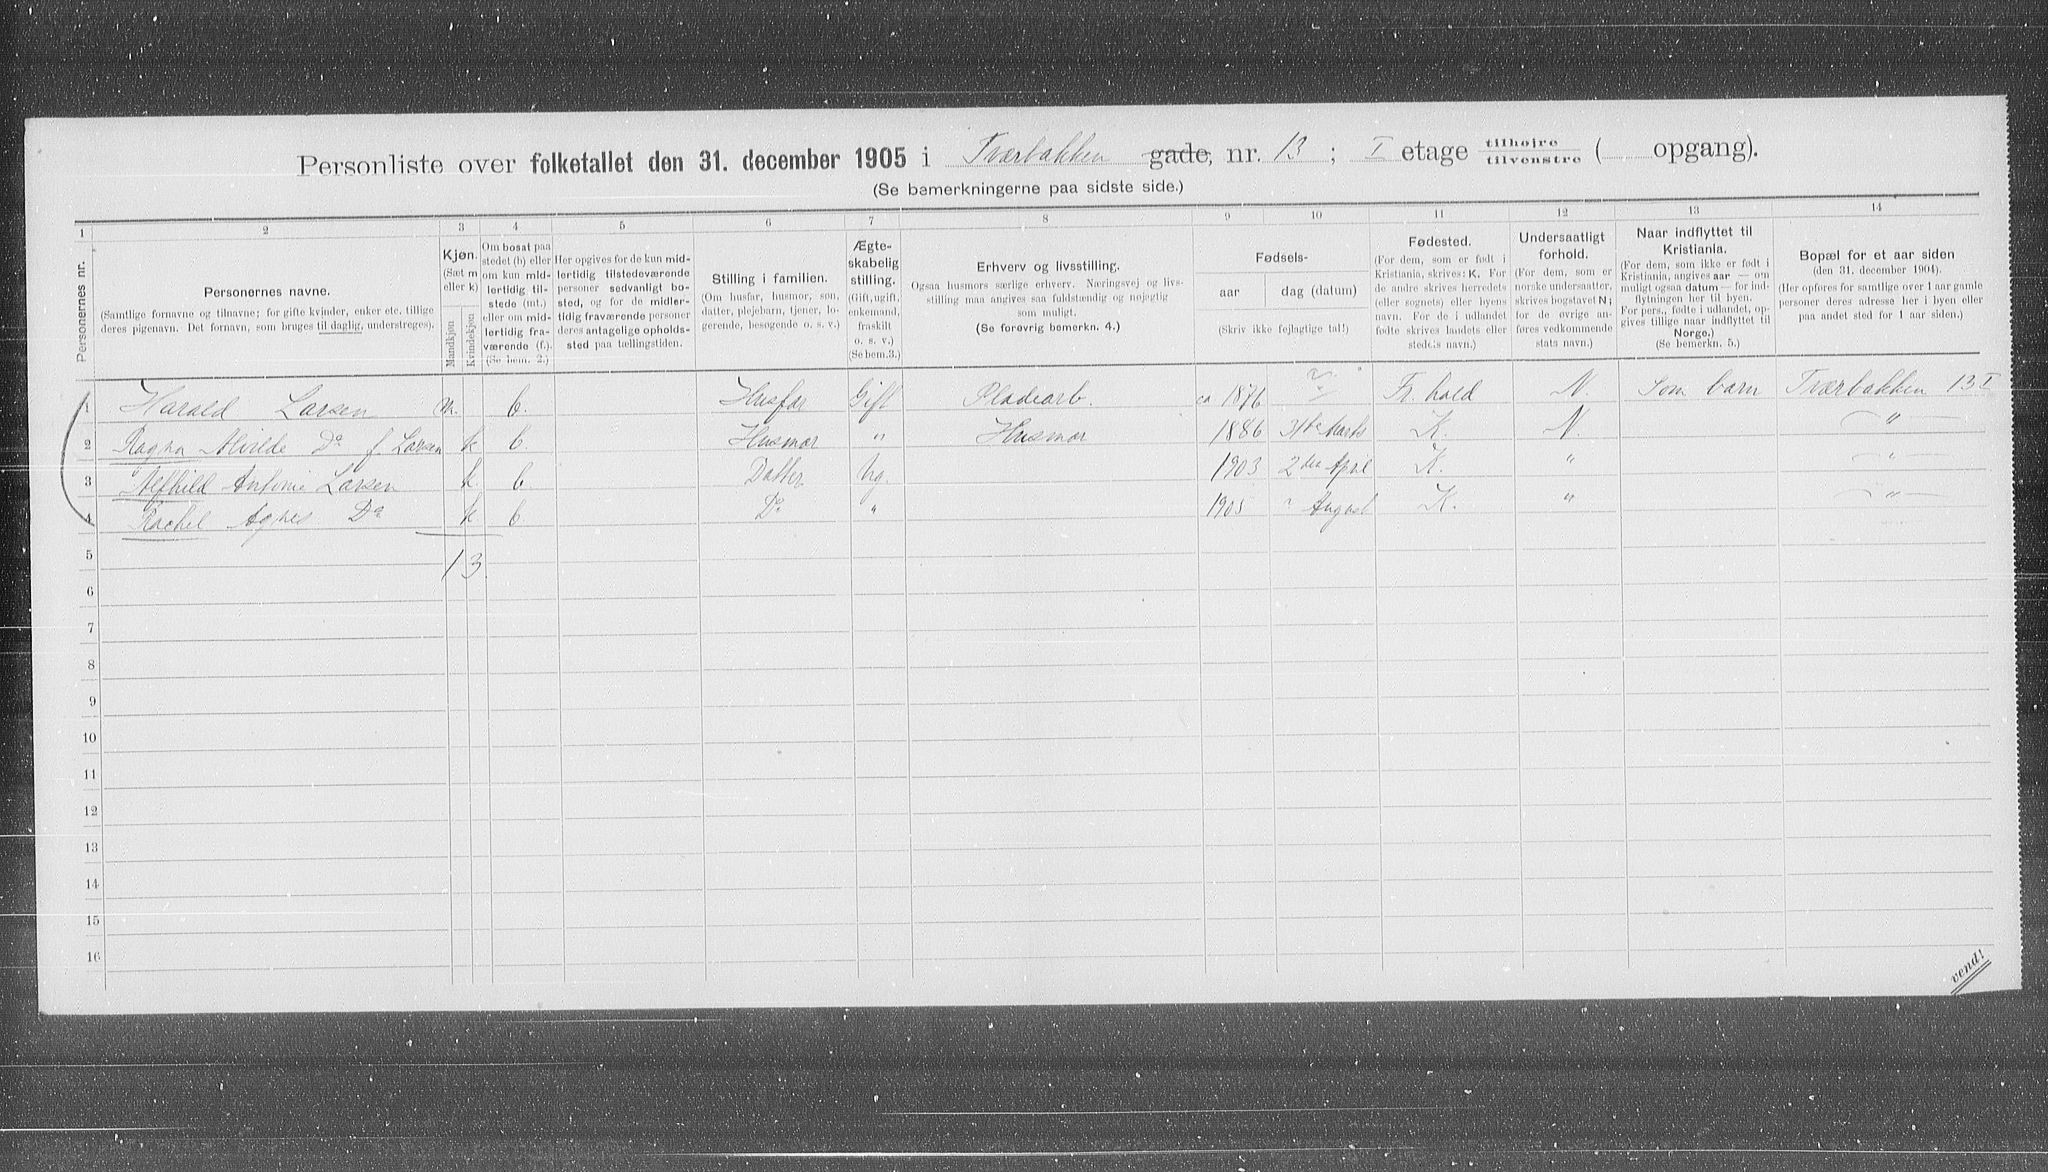 Personliste over folketallet den 31. december 1905 i Tværbakken gade, nr. 13 ; I etage tilhøjre tilvenstre ( opgang).
(Se bemerkningerne paa sidste side.)
1 2 3 4 5 6 7 8 9 10 11 12 13 14
Personernes nr.
Personernes navne.
(Samtlige fornavne og tilnavne; for gifte kvinder, enker etc. tillige
deres pigenavn. Det fornavn, som bruges til daglig, understreges).
Kjøn.
(Sæt m
eller k)
Mandkjøn
Kvindekjøn
Om bosat paa
stedet (b) eller
om kun mid-
lertidig til-
stede (mt.)
eller om mid-
lertidig fra-
værende (f.).
(Se bem. 2.)
Her opgives for de kun mid-
lertidig tilstedeværende
personer sedvanligt bo-
sted, og for de midler-
tidig fraværende personer
deres antagelige opholds-
sted paa tællingstiden.
Stilling i familien.
(Om husfar, husmor, søn,
datter, plejebarn, tjener, lo-
gerende, besøgende o. s. v.)
Ægte-
skabelig
stilling.
(Gift, ugift,
enkemand,
fraskilt
o. s. v.)
(Se bem.3.)
Erhverv og livsstilling.
Ogsaa husmors særlige erhverv. Næringsvej og livs-
stilling maa angives saa fuldstændig og nøjegtig
som muligt.
(Se forøvrig bemerkn. 4.)
Fødsels-
aar
dag (datum)
(Skriv ikke fejlagtige tal!)
Fødested.
(For dem, som er født i
Kristiania, skrives: K. For
de andre skrives herredets
(eller sognets) eller byens
navn. For de i udlandet
fødte skrives landets eller
stedets navn.)
Undersaatligt
forhold.
(For dem, som er
norske undersaatter,
skrives bogstavet N;
for de øvrige an-
føres vedkommende
stats navn.)
Naar indflyttet til
Kristiania.
(For dem, som ikke er født i
Kristiania, angives aar — om
muligt ogsaa datum — for ind-
flytningen her til byen.
For pers., fødte i udlandet, op-
gives tillige naar indflyttet til
Norge.)
(Se bemerkn. 5.)
Bopæl for et aar siden
(den 31. december 1904).
(Her opføres for samtlige over 1 aar gamle
personer deres adresse her i byen eller
paa andet sted for 1 aar siden.)
1 Harald Larsen m. b. Husfar Gift Pladearb. ca 1876 ? Fr.hald N. Som barn Tværbakken 13 I
2 Ragna Do f. Larsen k b. Husmor " Husmor 1886 31te Marts K. N. — " —
3 Alfhild Antonie Larsen k. b. Datter Ug. 1903 2den April K. " — " —
4 Rachel Agnes Do k b Do " 1905 ? August K. " — " —
5 1 3.
6
7
8
9
10
11
12
13
14
15
16
vend!